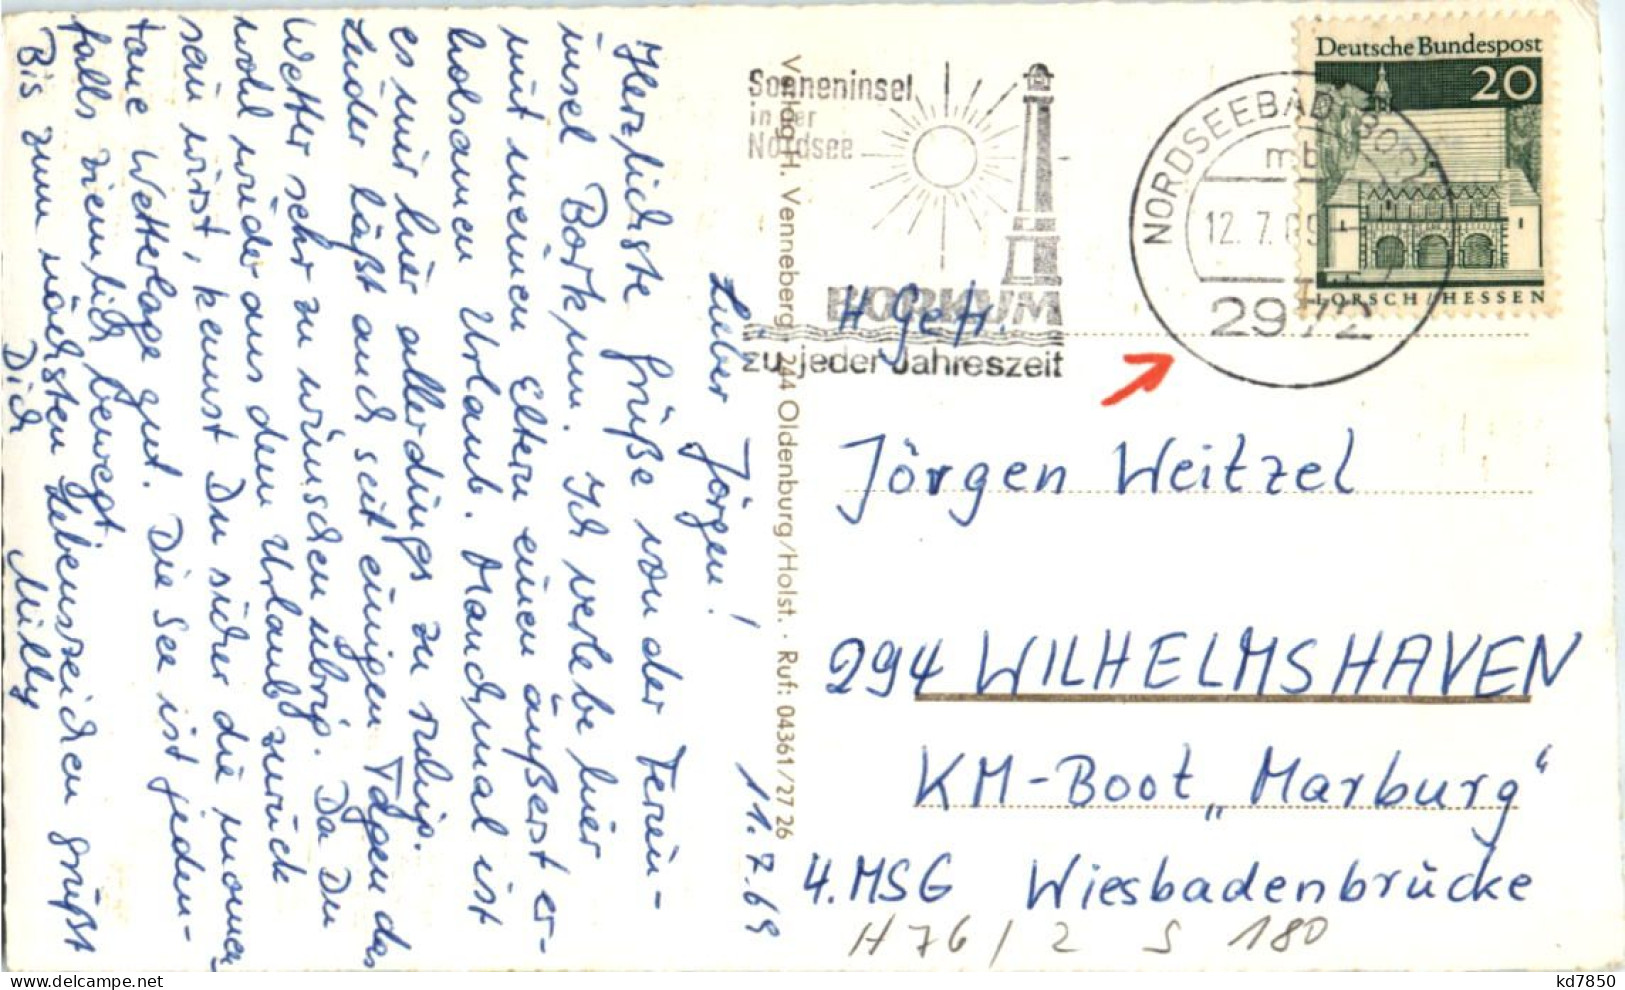 11.7.69
Lieber Jörgen!
Herzlichste Grüße von der Ferien-
insel Borkum. Ich verlebe hier
mit meinen Eltern einen äußerst er-
holsamen Urlaub. Manchmal ist
es mir hier allerdings zu ruhig.
Leider läßt auch seit einigen Tagen das
Wetter sehr zu wünschen übrig. Da Du
wohl wieder aus dem Urlaub zurück
sein wirst, kennst Du sicher die momen-
tane Wetterlage gut. Die See ist jeden-
falls ziemlich bewegt.
Bis zum nächsten Lebenszeichen grüßt
Dich Milly
Verlag H. Venneberg · 244 Oldenburg/Holst. · Ruf: 04361/27 26
Sonneninsel
in der
Nordsee
BORKUM
zu jeder Jahreszeit
NORDSEEBAD BORKUM
mb
12.7.69
2972
Deutsche Bundespost
20
LORSCH/HESSEN
H Gefr.
Jörgen Weitzel
294 WILHELMSHAVEN
KM-Boot „Marburg“
4. MSG Wiesbadenbrücke
H 76 / 2 S 180
kd7850